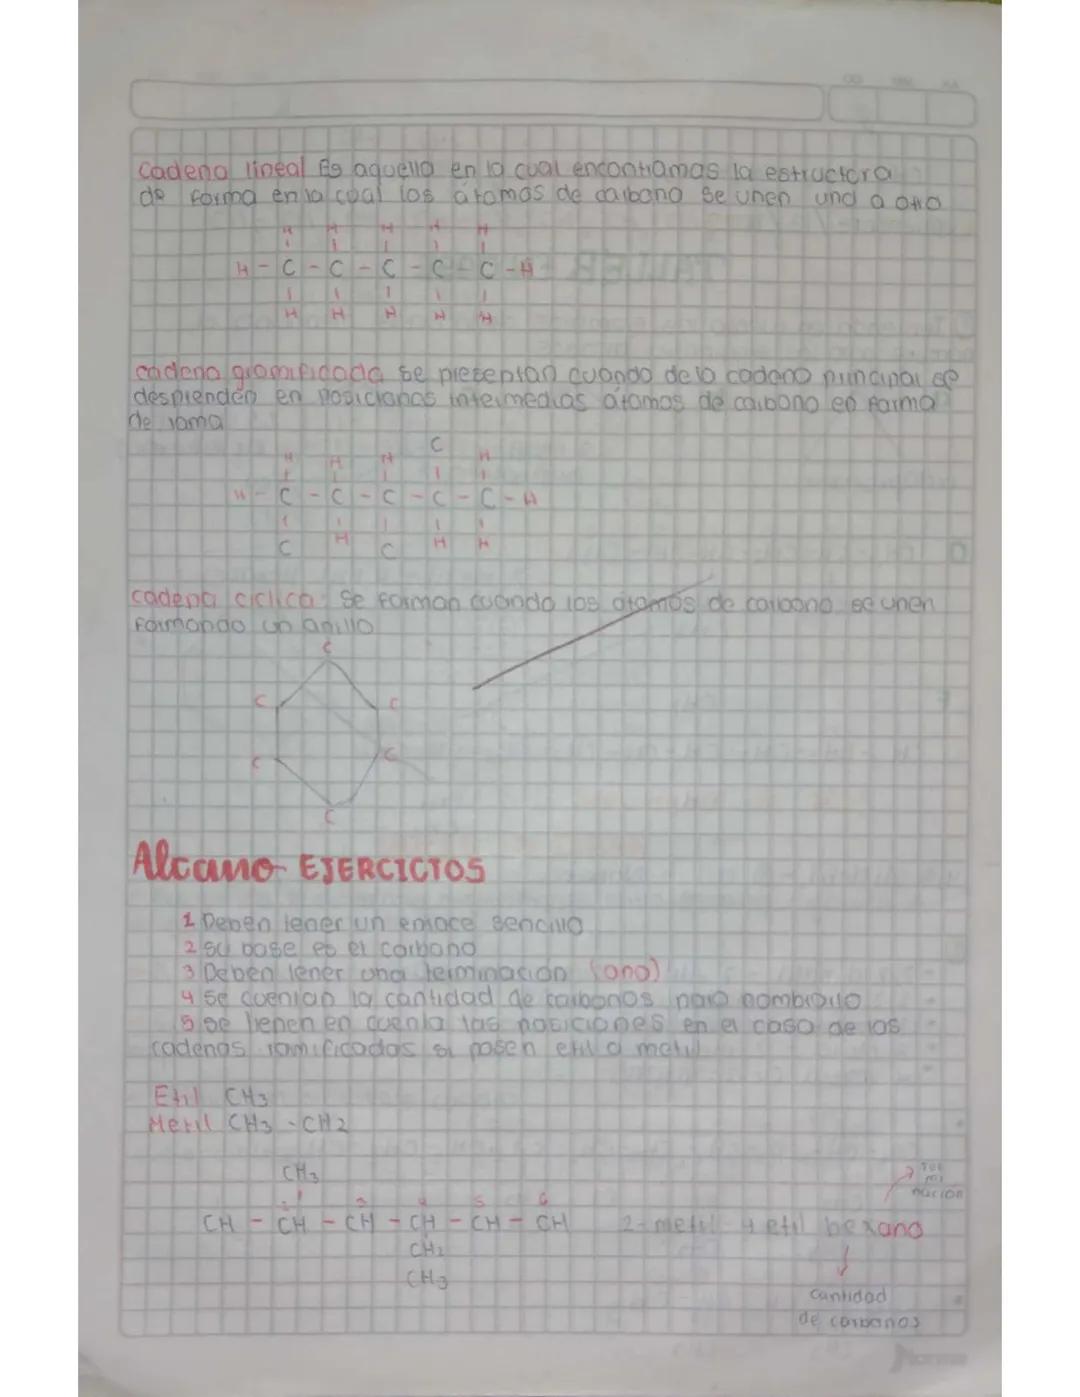 Cadena lineal Es aquella en la cual encontramos la estructura
de forma en la cual los átomos de carbono se unen uno a otro
H H H H H
H - C - C - C - C - C - H
H H H H H
cadena gramificada se presentan cuando de la cadena principal se
desprenden en posiciones intermedias átomos de carbono en forma
de rama
C
H H H H
H - C - C - C - C - C - H
C H C H H
cadena ciclica: Se forman cuando los átomos de carbono se unen
formando un anillo
C
C C
C C
C
Alcano EJERCICIOS
1 Deben tener un enlace sencillo
2 su base es el carbono
3 Deben tener una terminación (ano)
4 se cuentan la cantidad de carbonos para nombrarlo
5 se tienen en cuenta las posiciones en el caso de las
cadenas ramificadas si posen etil o metil
Etil CH3
Metil CH3 - CH2
CH3
2 3 4 5 6
CH - CH - CH - CH - CH - CH 2-metil-4 etil hexano
CH2
CH3
Ter
mi
nación
cantidad
de carbonos
Norma